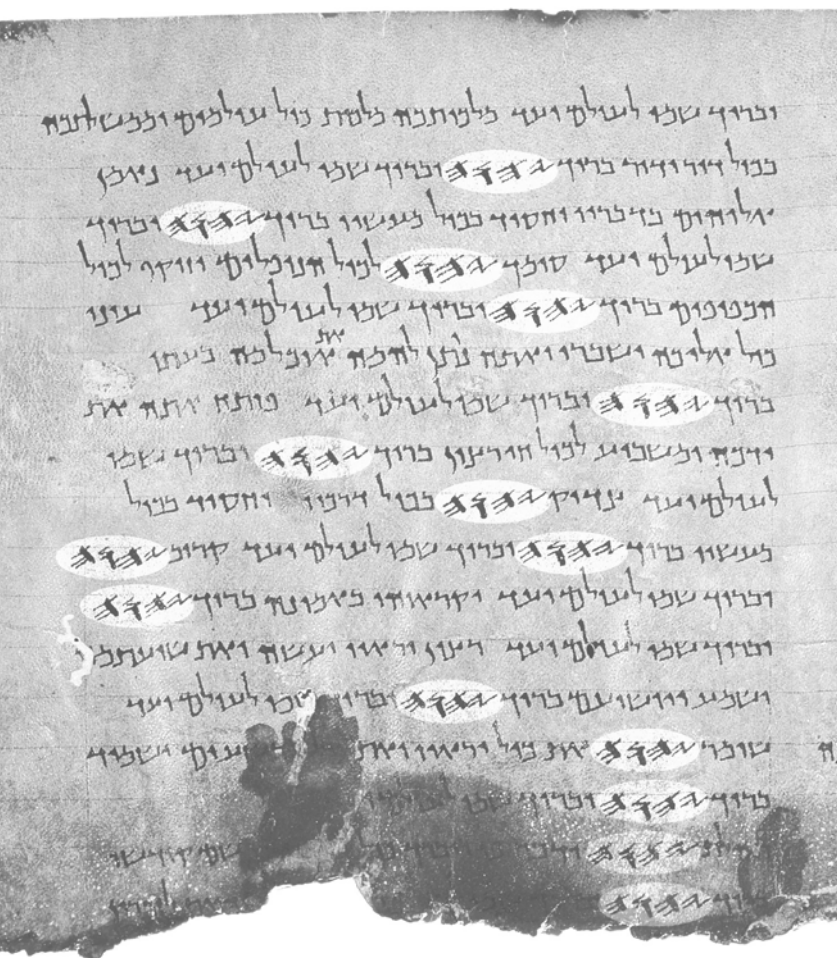 וברוך שמו לעולם ועד מלכותכה מלכות כול עולמים וממשלתכה
בכול דור ודור ברוך 𐤉𐤄𐤅𐤄 וברוך שמו לעולם ועד נאמן
אלוהים בדבריו וחסיד בכול מעשיו ברוך 𐤉𐤄𐤅𐤄 וברוך
שמו לעולם ועד סומך 𐤉𐤄𐤅𐤄 לכול הנופלים וזוקף לכול
הכפופים ברוך 𐤉𐤄𐤅𐤄 וברוך שמו לעולם ועד עיני
כול אליכה ישברו ואתה נותן להמה את אוכלמה בעתו
ברוך 𐤉𐤄𐤅𐤄 וברוך שמו לעולם ועד פותח אתה את
ידכה ומשביע לכול חי רצון ברוך 𐤉𐤄𐤅𐤄 וברוך שמו
לעולם ועד צדיק 𐤉𐤄𐤅𐤄 בכול דרכיו וחסיד בכול
מעשיו ברוך 𐤉𐤄𐤅𐤄 וברוך שמו לעולם ועד קרוב 𐤉𐤄𐤅𐤄
וברוך שמו לעולם ועד יקראוהו באמונה ברוך 𐤉𐤄𐤅𐤄
וברוך שמו לעולם ועד רצון יראיו יעשה ואת
ישמע ויושיעם ברוך 𐤉𐤄𐤅𐤄 וברוך שמו לעולם ועד
שומר 𐤉𐤄𐤅𐤄 את כול יראיו ואת ישמיד
ברוך 𐤉𐤄𐤅𐤄 וברוך שמו
𐤉𐤄𐤅𐤄 שם קודשו
ברוך 𐤉𐤄𐤅𐤄